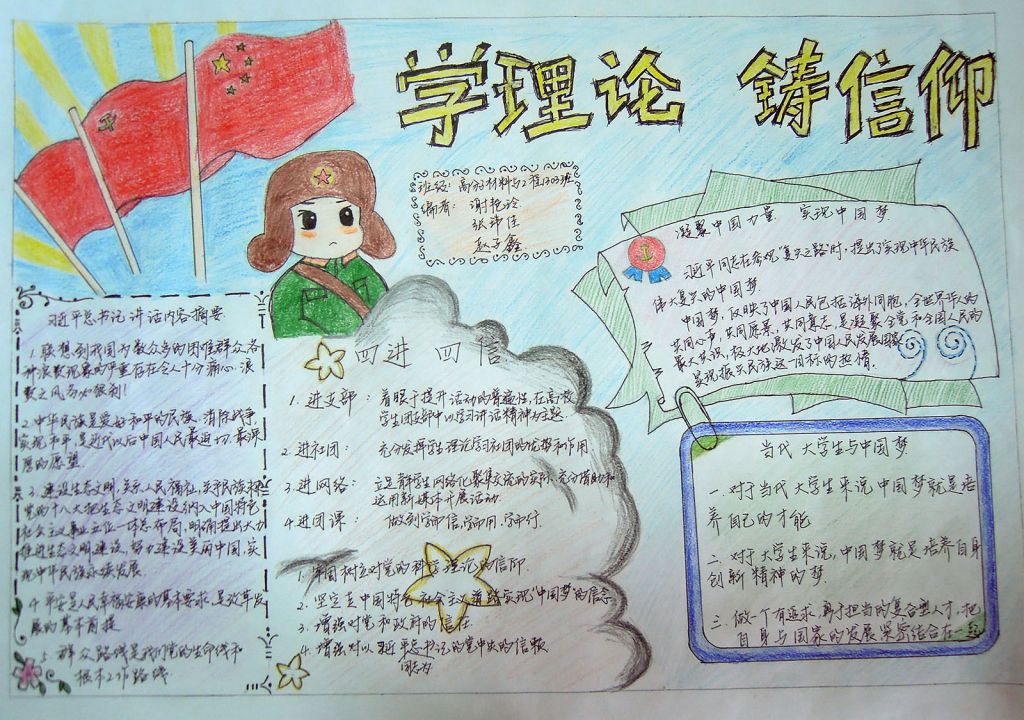 学理论 铸信仰
班级：高分材料与工程1303班
编者：谢艳玲
张沛佳
赵子鑫
习近平总书记讲话内容摘要
1.联想到我国为数众多的困难群众，各
种浪费现象的严重存在令人十分痛心，浪
费之风务必狠刹！
2.中华民族是爱好和平的民族。消除战争，
实现和平，是近代以后中国人民最迫切、最深
厚的愿望。
3.建设生态文明，关系人民福祉，关乎民族未来
党的十八大把生态文明建设纳入中国特色
社会主义事业五位一体总布局，明确提出大力
推进生态文明建设，努力建设美丽中国，实
现中华民族永续发展.
4.平安是人民幸福安康的基本要求，是改革发
展的基本前提
5.群众路线是我们党的生命线和
根本工作路线.
四进 四信
1.进支部：着眼于提升活动的普遍性，在高校
学生团支部中以学习讲话精神为主题.
2.进社团：充分发挥学生理论学习社团的优势和作用
3.进网络：立足青年学生网络化聚集交流的实际，充分借助和
运用新媒体开展活动.
4.进团课：做到学而信、学而用、学而行.
1.牢固树立对党的科学理论的信仰.
2.坚定走中国特色社会主义道路实现"中国梦"的信念
3.增强对党和政府的信任
4.增强对以习近平总书记的党中央的信赖
同志为
凝聚中国力量 实现中国梦
习近平同志在参观"复兴之路"时，提出了实现中华民族
伟大复兴的中国梦.
中国梦，反映了中国人民包括海外同胞，全世界华人的
共同心声，共同愿景，共同意志，是凝聚全党和全国人民的
最大共识，极大地激发了中国人民发展国家
实现振兴民族这一目标的热情.
当代大学生与中国梦
一.对于当代大学生来说中国梦就是培
养自己的才能
二.对于大学生来说，中国梦就是培养自身
创新精神的梦.
三.做一个有追求，勇于担当的复合型人才，把
自身与国家的发展紧密结合在一起